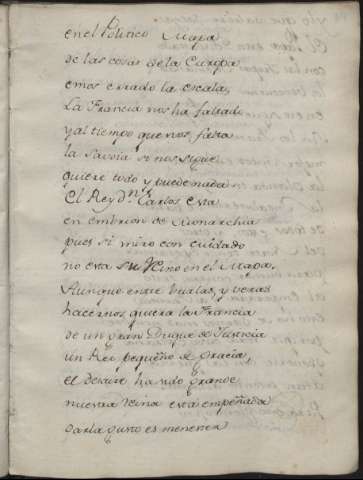 en el Politico Mapa
de las cosas de la Europa
emos errado la escala,
La Francia nos ha faltado
y al tiempo que nos falta
la Savoia si nos sigue
quiere todo y puede nada
El Rey dn. Carlos esta
en embrion de Monarchia
pues si miro con cuidado
no esta su Reino en el Mapa.
Aunque entre burlas, y veras
hacernos quiera la Francia
de un gran Duque de Justicia
un Rei pequeño de gracia,
el ha sido grande
nuestra Reina esta empeñada
darla gusto es menester